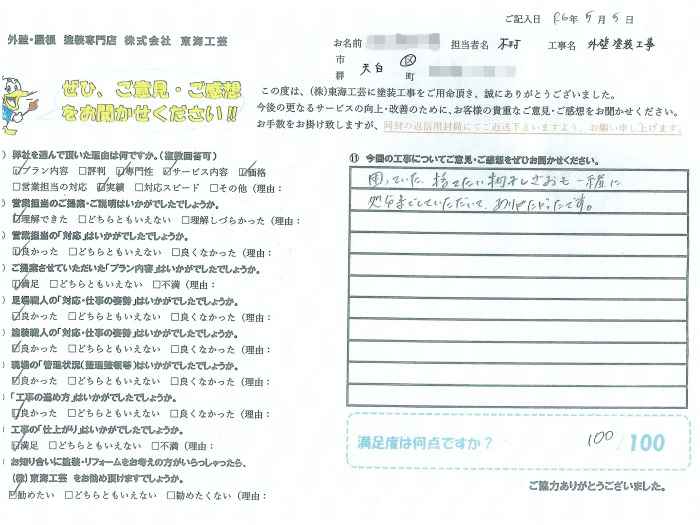 ご記入日 R6年 5月 5日
外壁・屋根 塗装専門店 株式会社 東海工芸
お名前 担当者名 木村 工事名 外壁塗装工事
市 郡 天白 区 町
ぜひ、ご意見・ご感想
をお聞かせください!!
この度は、(株)東海工芸に塗装工事をご用命頂き、誠にありがとうございました。
今後の更なるサービスの向上・改善のために、お客様の貴重なご意見・ご感想をお聞かせください。
お手数をお掛け致しますが、同封の返信用封筒にてご返送下さいますよう、お願い申し上げます。
) 弊社を選んで頂いた理由は何ですか。(複数回答可)
☑プラン内容 □評判 ☑専門性 ☑サービス内容 ☑価格
□営業担当の対応 ☑実績 □対応スピード □その他(理由:
) 営業担当のご提案・ご説明はいかがでしたでしょうか。
☑理解できた □どちらともいえない □理解しづらかった(理由:
) 営業担当の「対応」はいかがでしたでしょうか。
☑良かった □どちらともいえない □良くなかった(理由:
) ご提案させていただいた「プラン内容」はいかがでしたでしょうか。
☑満足 □どちらともいえない □不満(理由:
) 足場職人の「対応・仕事の姿勢」はいかがでしたでしょうか。
☑良かった □どちらともいえない □良くなかった(理由:
) 塗装職人の「対応・仕事の姿勢」はいかがでしたでしょうか。
☑良かった □どちらともいえない □良くなかった(理由:
) 現場の「管理状況(整理整頓等)はいかがでしたでしょうか。
☑良かった □どちらともいえない □良くなかった(理由:
) 「工事の進め方」はいかがでしたでしょうか。
☑良かった □どちらともいえない □良くなかった(理由:
) 工事の「仕上がり」はいかがでしたでしょうか。
☑満足 □どちらともいえない □不満(理由:
) お知り合いに塗装・リフォームをお考えの方がいらっしゃったら、
(株)東海工芸 をお勧め頂けますでしょうか。
☑勧めたい □どちらともいえない □勧めたくない(理由:
⑪ 今回の工事についてご意見・ご感想をぜひお聞かせください。
困っていた、捨てたい物干しざおも一緒に
処分までしていただいて、ありがたかったです。
満足度は何点ですか? 100/100
ご協力ありがとうございました。